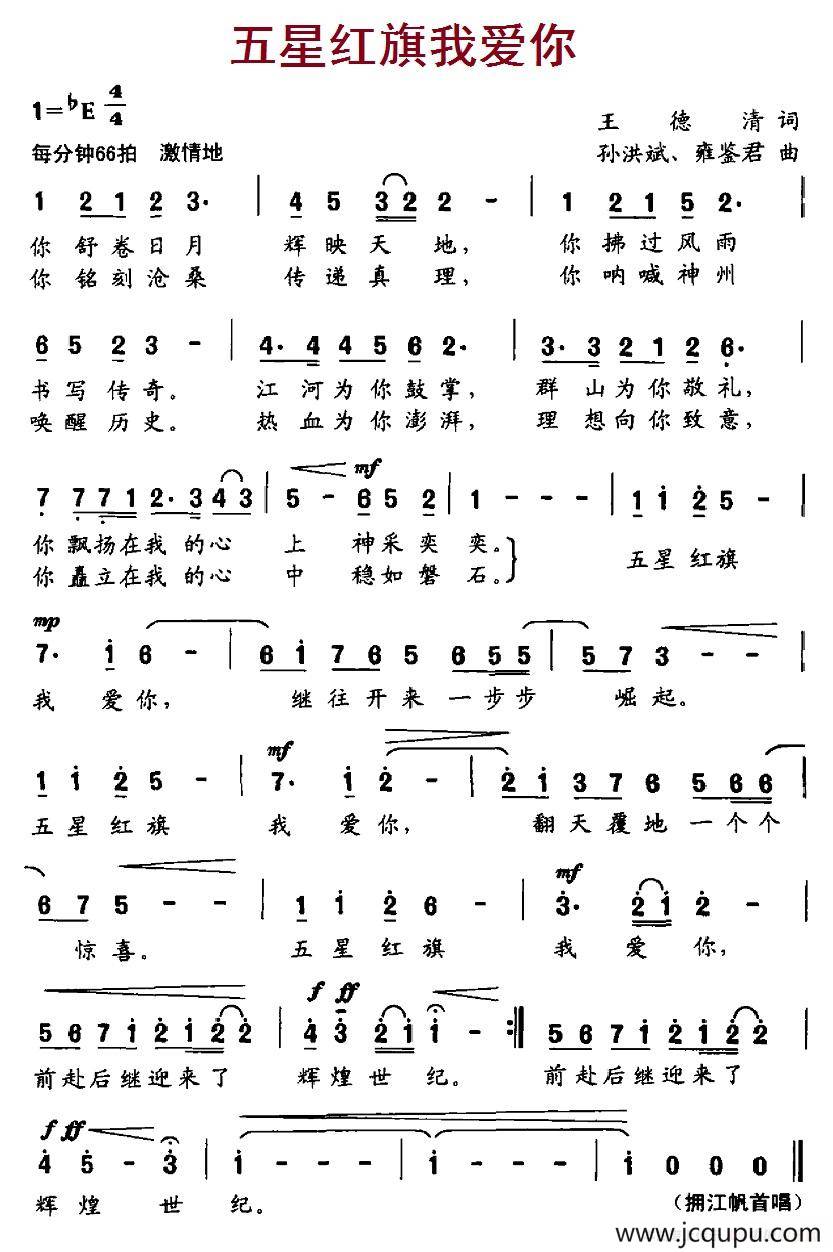 五星红旗我爱你
1=♭E 4/4
王德清 词
每分钟66拍 激情地
孙洪斌、雍鉴君 曲
1 2 1 2 3· | 4 5 3 2 2 - | 1 2 1 5 2· |
你舒卷日月 辉映天地， 你拂过风雨
你铭刻沧桑 传递真理， 你呐喊神州
6 5 2 3 - | 4· 4 4 5 6 2· | 3· 3 2 1 2 6· |
书写传奇。 江河为你鼓掌， 群山为你敬礼，
唤醒历史。 热血为你澎湃， 理想向你致意，
mf
7 7 7 1 2· 3 4 3 | 5 - 6 5 2 | 1 - - - | 1 1 2 5 - |
你飘扬在我的心上 神采奕奕。 五星红旗
你矗立在我的心中 稳如磐石。
mp
7· 1 6 - | 6 1 7 6 5 6 5 5 | 5 7 3 - - |
我爱你， 继往开来一步步 崛起。
mf
1 1 2 5 - | 7· 1 2 - | 2 1 3 7 6 5 6 6 |
五星红旗 我爱你， 翻天覆地一个个
mf
6 7 5 - - | 1 1 2 6 - | 3· 2 1 2 - |
惊喜。 五星红旗 我爱你，
f ff
5 6 7 1 2 1 2 2 | 4 3 2 1 1 - :‖ 5 6 7 1 2 1 2 2 |
前赴后继迎来了 辉煌世纪。 前赴后继迎来了
f ff
4 5 - 3 | 1 - - - | 1 - - - | 1 0 0 0 ‖
辉煌 世纪。 （拥江帆首唱）
www.jcqupu.com